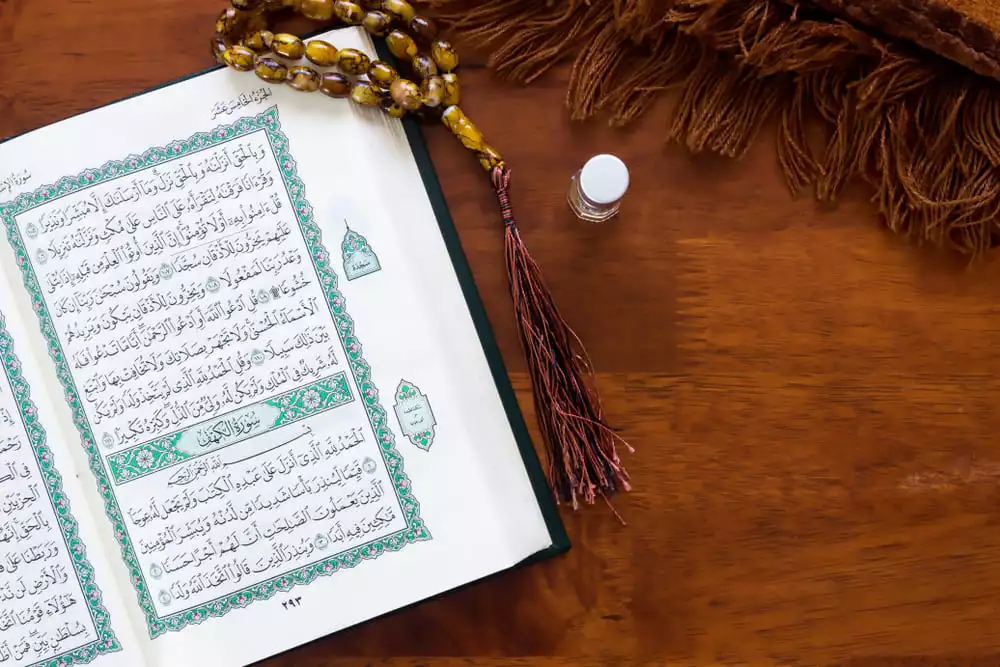 الجزء الخامس عشر
وَبِٱلْحَقِّ أَنزَلْنَٰهُ وَبِٱلْحَقِّ نَزَلَ وَمَآ أَرْسَلْنَٰكَ إِلَّا مُبَشِّرًا وَنَذِيرًا ١٠٥
وَقُرْءَانًا فَرَقْنَٰهُ لِتَقْرَأَهُۥ عَلَى ٱلنَّاسِ عَلَىٰ مُكْثٍ وَنَزَّلْنَٰهُ تَنزِيلًا ١٠٦
قُلْ ءَامِنُوا۟ بِهِۦٓ أَوْ لَا تُؤْمِنُوٓا۟ إِنَّ ٱلَّذِينَ أُوتُوا۟ ٱلْعِلْمَ مِن قَبْلِهِۦٓ إِذَا يُتْلَىٰ
عَلَيْهِمْ يَخِرُّونَ لِلْأَذْقَانِ سُجَّدًا ١٠٧ وَيَقُولُونَ سُبْحَٰنَ رَبِّنَآ إِن كَانَ
وَعْدُ رَبِّنَا لَمَفْعُولًا ١٠٨ وَيَخِرُّونَ لِلْأَذْقَانِ يَبْكُونَ وَيَزِيدُهُمْ
خُشُوعًا ۩ ١٠٩ قُلِ ٱدْعُوا۟ ٱللَّهَ أَوِ ٱدْعُوا۟ ٱلرَّحْمَٰنَ أَيًّا مَّا تَدْعُوا۟ فَلَهُ
ٱلْأَسْمَآءُ ٱلْحُسْنَىٰ وَلَا تَجْهَرْ بِصَلَاتِكَ وَلَا تُخَافِتْ بِهَا وَٱبْتَغِ
بَيْنَ ذَٰلِكَ سَبِيلًا ١١٠ وَقُلِ ٱلْحَمْدُ لِلَّهِ ٱلَّذِى لَمْ يَتَّخِذْ وَلَدًا وَلَمْ يَكُن
لَّهُۥ شَرِيكٌ فِى ٱلْمُلْكِ وَلَمْ يَكُن لَّهُۥ وَلِىٌّ مِّنَ ٱلذُّلِّ وَكَبِّرْهُ تَكْبِيرًۢا ١١١
سُورَةُ الكَهْفِ
بِسْمِ ٱللَّهِ ٱلرَّحْمَٰنِ ٱلرَّحِيمِ
ٱلْحَمْدُ لِلَّهِ ٱلَّذِىٓ أَنزَلَ عَلَىٰ عَبْدِهِ ٱلْكِتَٰبَ وَلَمْ يَجْعَل لَّهُۥ عِوَجَا
١ قَيِّمًا لِّيُنذِرَ بَأْسًا شَدِيدًا مِّن لَّدُنْهُ وَيُبَشِّرَ ٱلْمُؤْمِنِينَ
ٱلَّذِينَ يَعْمَلُونَ ٱلصَّٰلِحَٰتِ أَنَّ لَهُمْ أَجْرًا حَسَنًا ٢
مَّٰكِثِينَ فِيهِ أَبَدًا ٣ وَيُنذِرَ ٱلَّذِينَ قَالُوا۟ ٱتَّخَذَ ٱللَّهُ وَلَدًا ٤
٢٩٣
سجدة